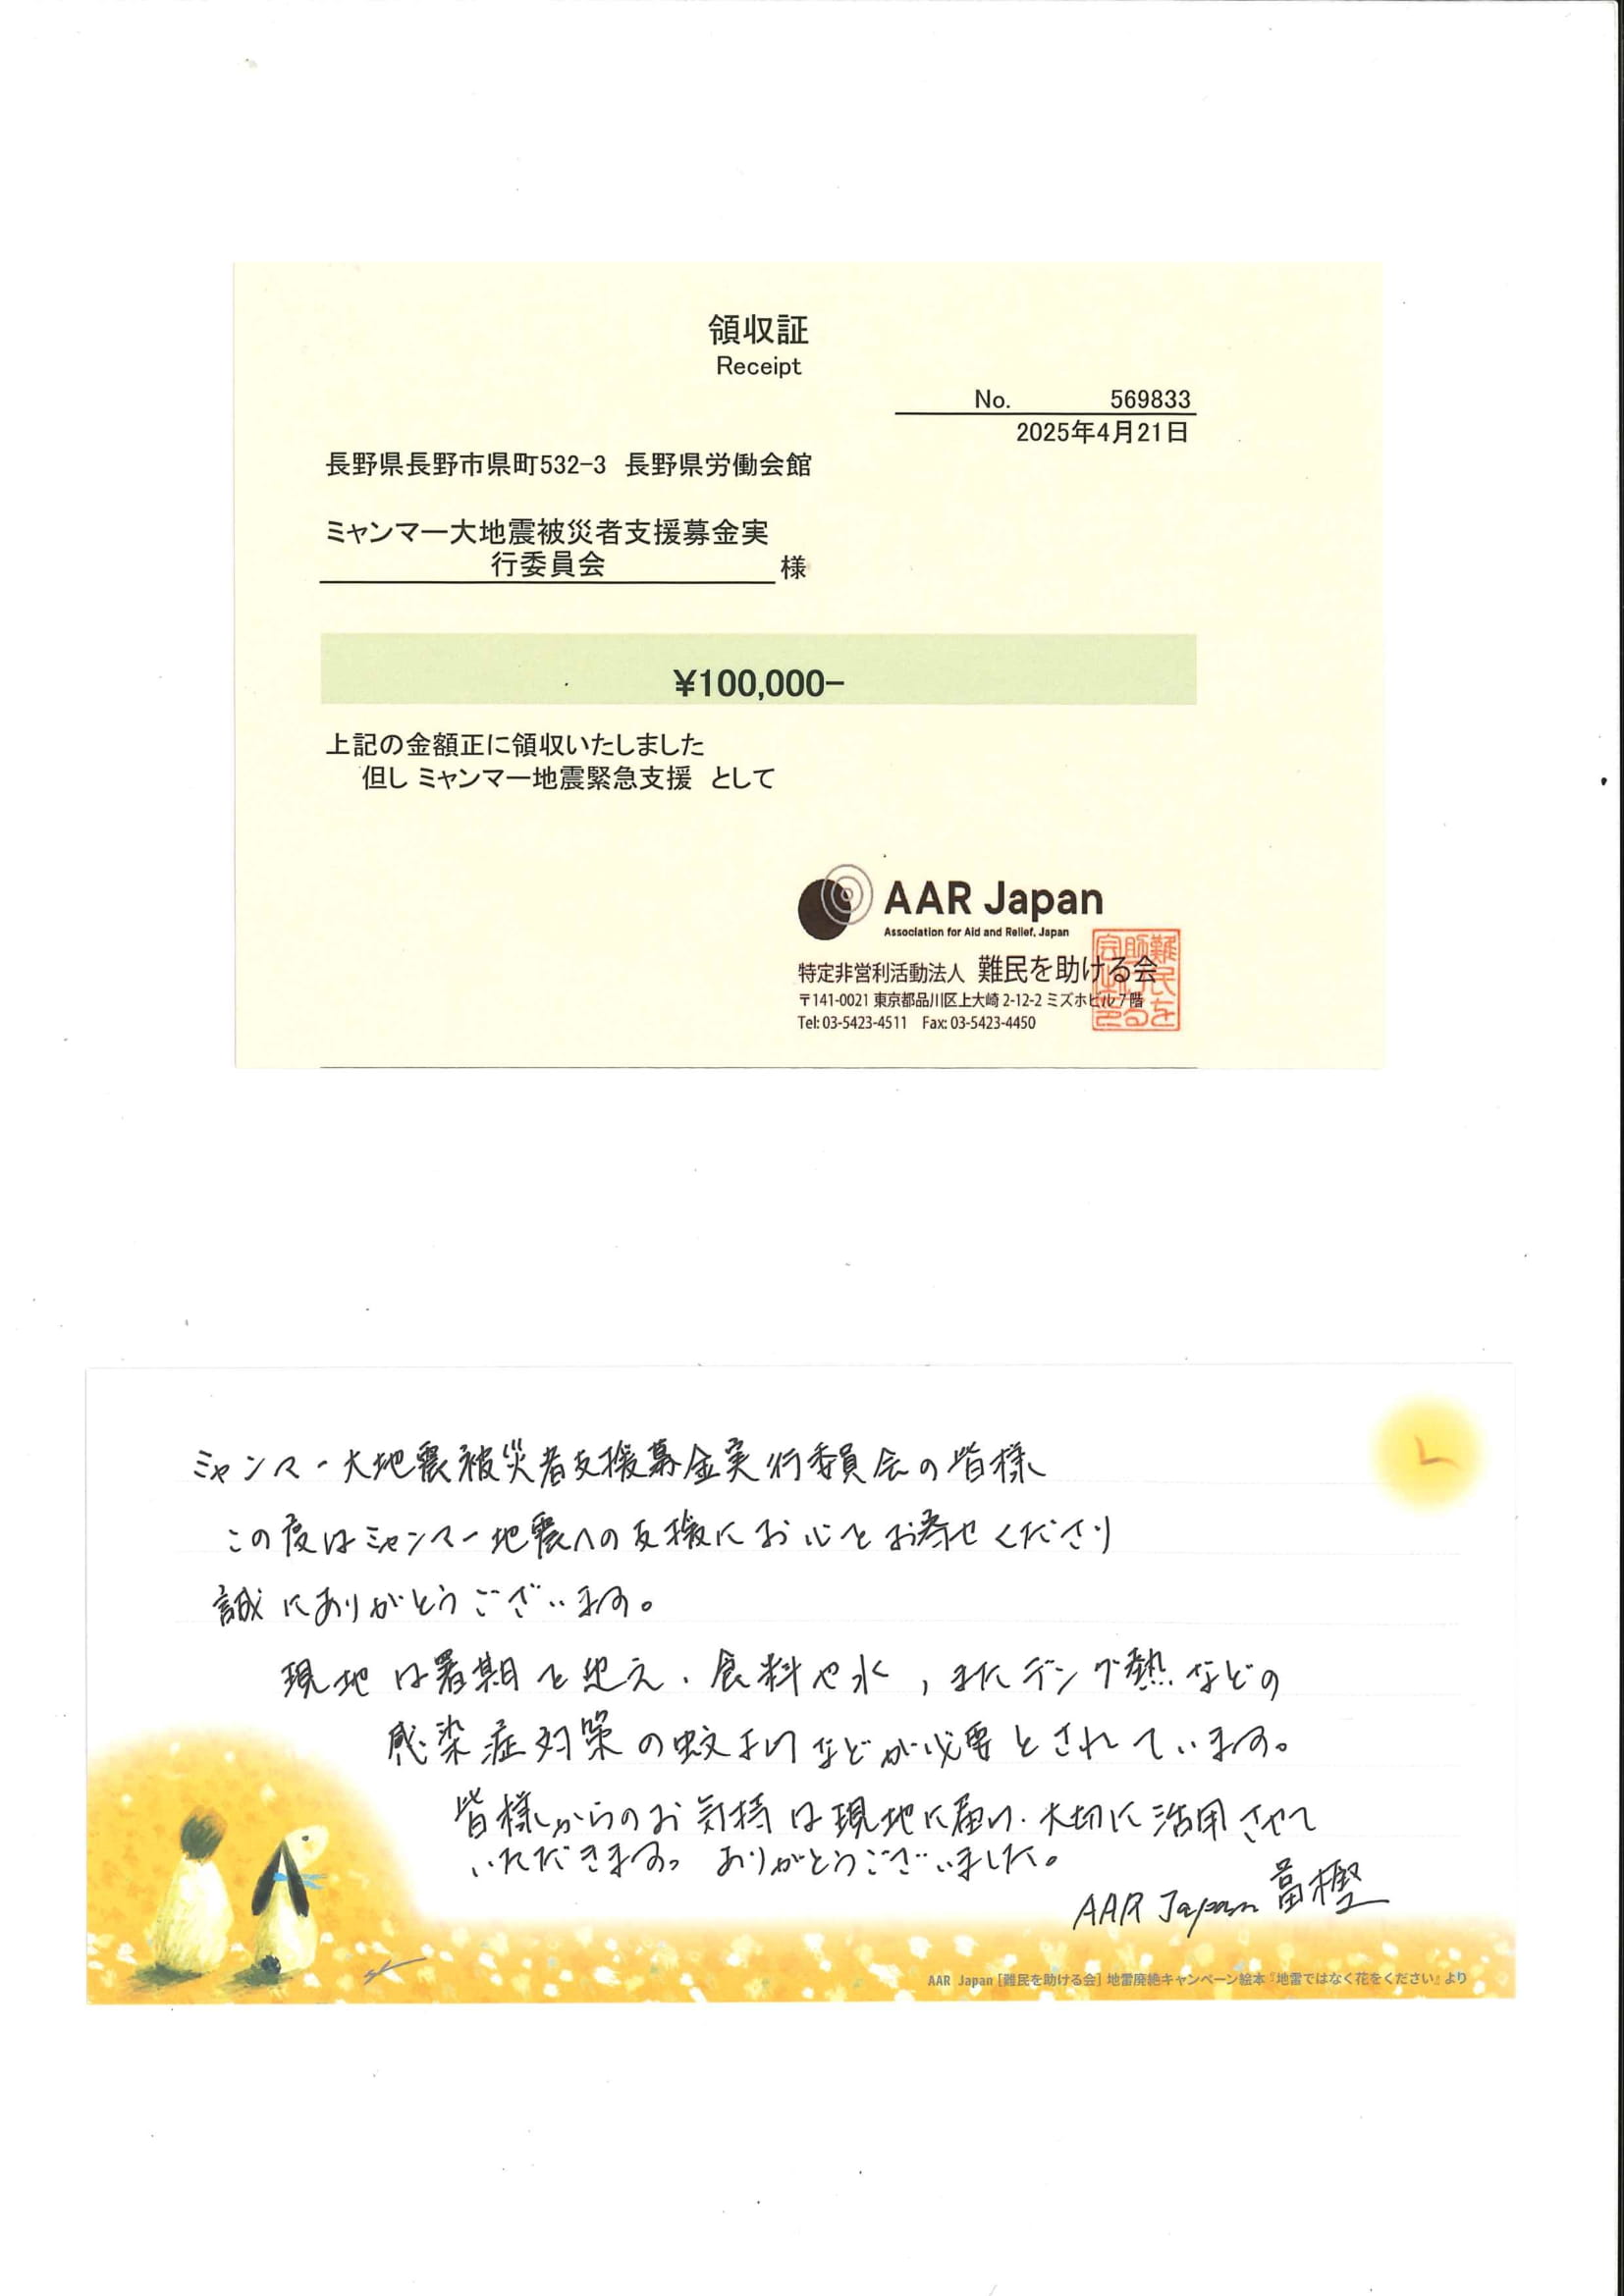 領収証
Receipt
No. 569833
2025年4月21日
長野県長野市県町532-3 長野県労働会館
ミャンマー大地震被災者支援募金実
行委員会 様
¥100,000-
上記の金額正に領収いたしました
但し ミャンマー地震緊急支援 として
AAR Japan
Association for Aid and Relief, Japan
特定非営利活動法人 難民を助ける会
〒141-0021 東京都品川区上大崎 2-12-2 ミズホビル 7 階
Tel: 03-5423-4511 Fax: 03-5423-4450
ミャンマー大地震被災者支援募金実行委員会の皆様
この度はミャンマー地震への支援にお心をお寄せくださり
誠にありがとうございます。
現地は暑期を迎え、食料や水、またデング熱などの
感染症対策の蚊よけなどが必要とされています。
皆様からのお気持は現地に届け、大切に活用させて
いただきます。ありがとうございました。
AAR Japan 富樫
AAR Japan [難民を助ける会] 地雷廃絶キャンペーン絵本『地雷ではなく花をください』より